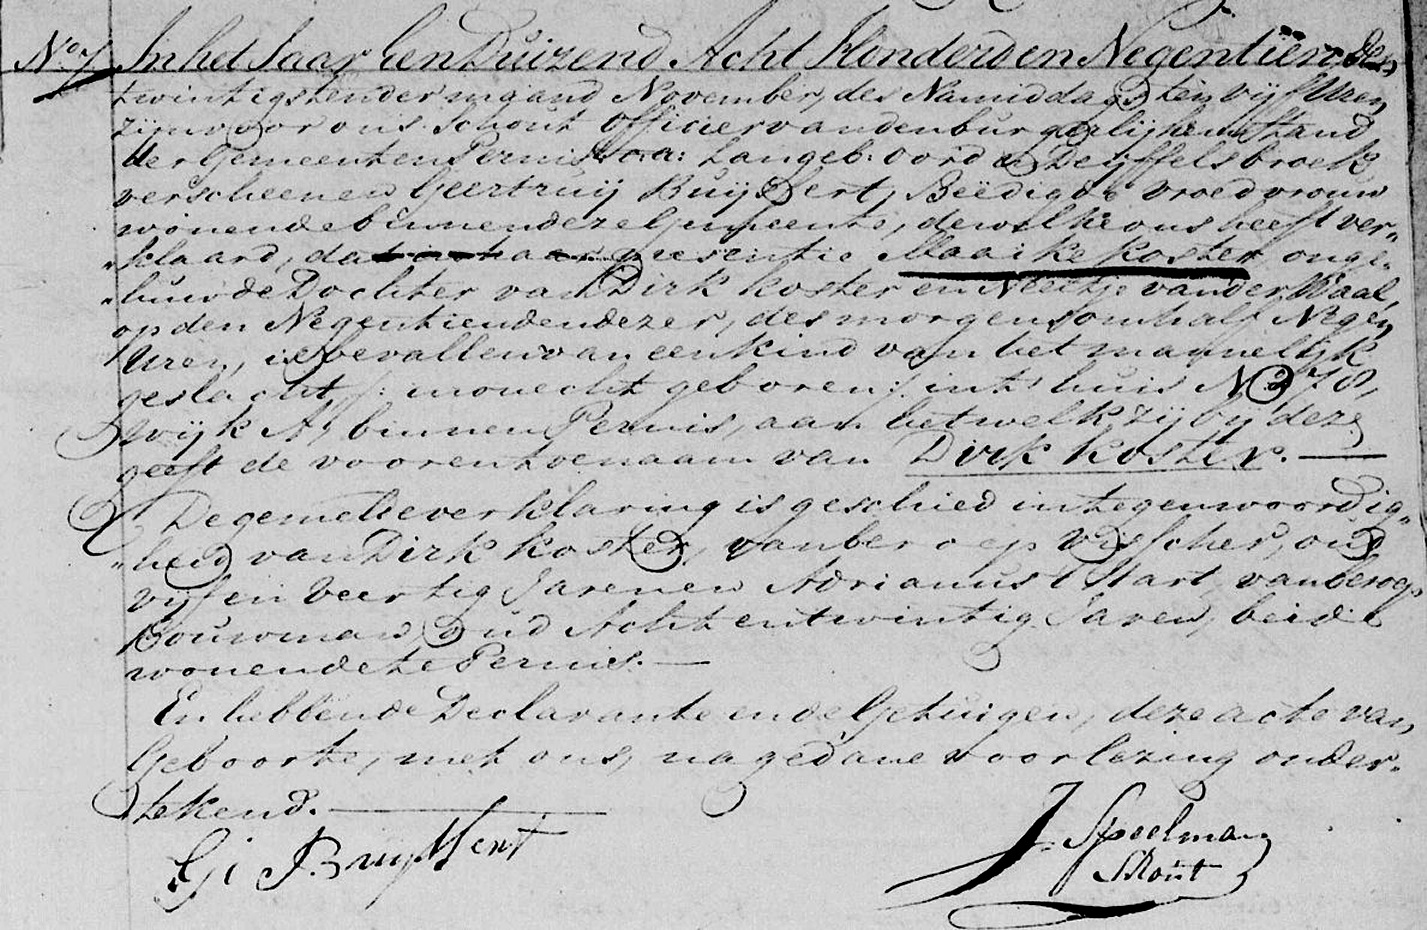 No 7 In het Jaar Een Duizend Acht Honderd en Negentien, den
twintigsten der maand November, des Namiddags ten vijf Uren
zijn voor ons Schout Officier van den burgerlijken Stand
der Gemeenten Pernis ca: Langeb: oord en Deijffelsbroek
verscheenen Geertruij Buijssert, Beëedigde vroedvrouw
wonende binnen deze Gemeente, dewelke ons heeft ver„
„klaard, dat in haar presentie Maaike Koster onge„
„huwde Dochter van Dirk Koster en Neeltje van der Waal,
op den Negentienden dezer, des morgens om half Negen
Uren, is bevallen van een kind van het mannelijk
geslacht /: onecht geboren :/ in 't huis No 278,
wijk A, binnen Pernis, aan hetwelk zij bij deze
geeft de voor en toenaam van Dirk Koster. —
De gemelde verklaring is geschied in tegenwoordig„
„heid van Dirk Koster, van beroep Visscher, oud
vijf en veertig Jaren en Adrianus 't Hart, van beroep
Bouwman, oud Acht en twintig Jaren, beide
wonende te Pernis. —
En hebben de Declarante en de Getuigen, deze acte van
Geboorte, met ons, na gedane voorlezing onder„
„tekend. —
G: Buijssert
J. Speelman
Schout